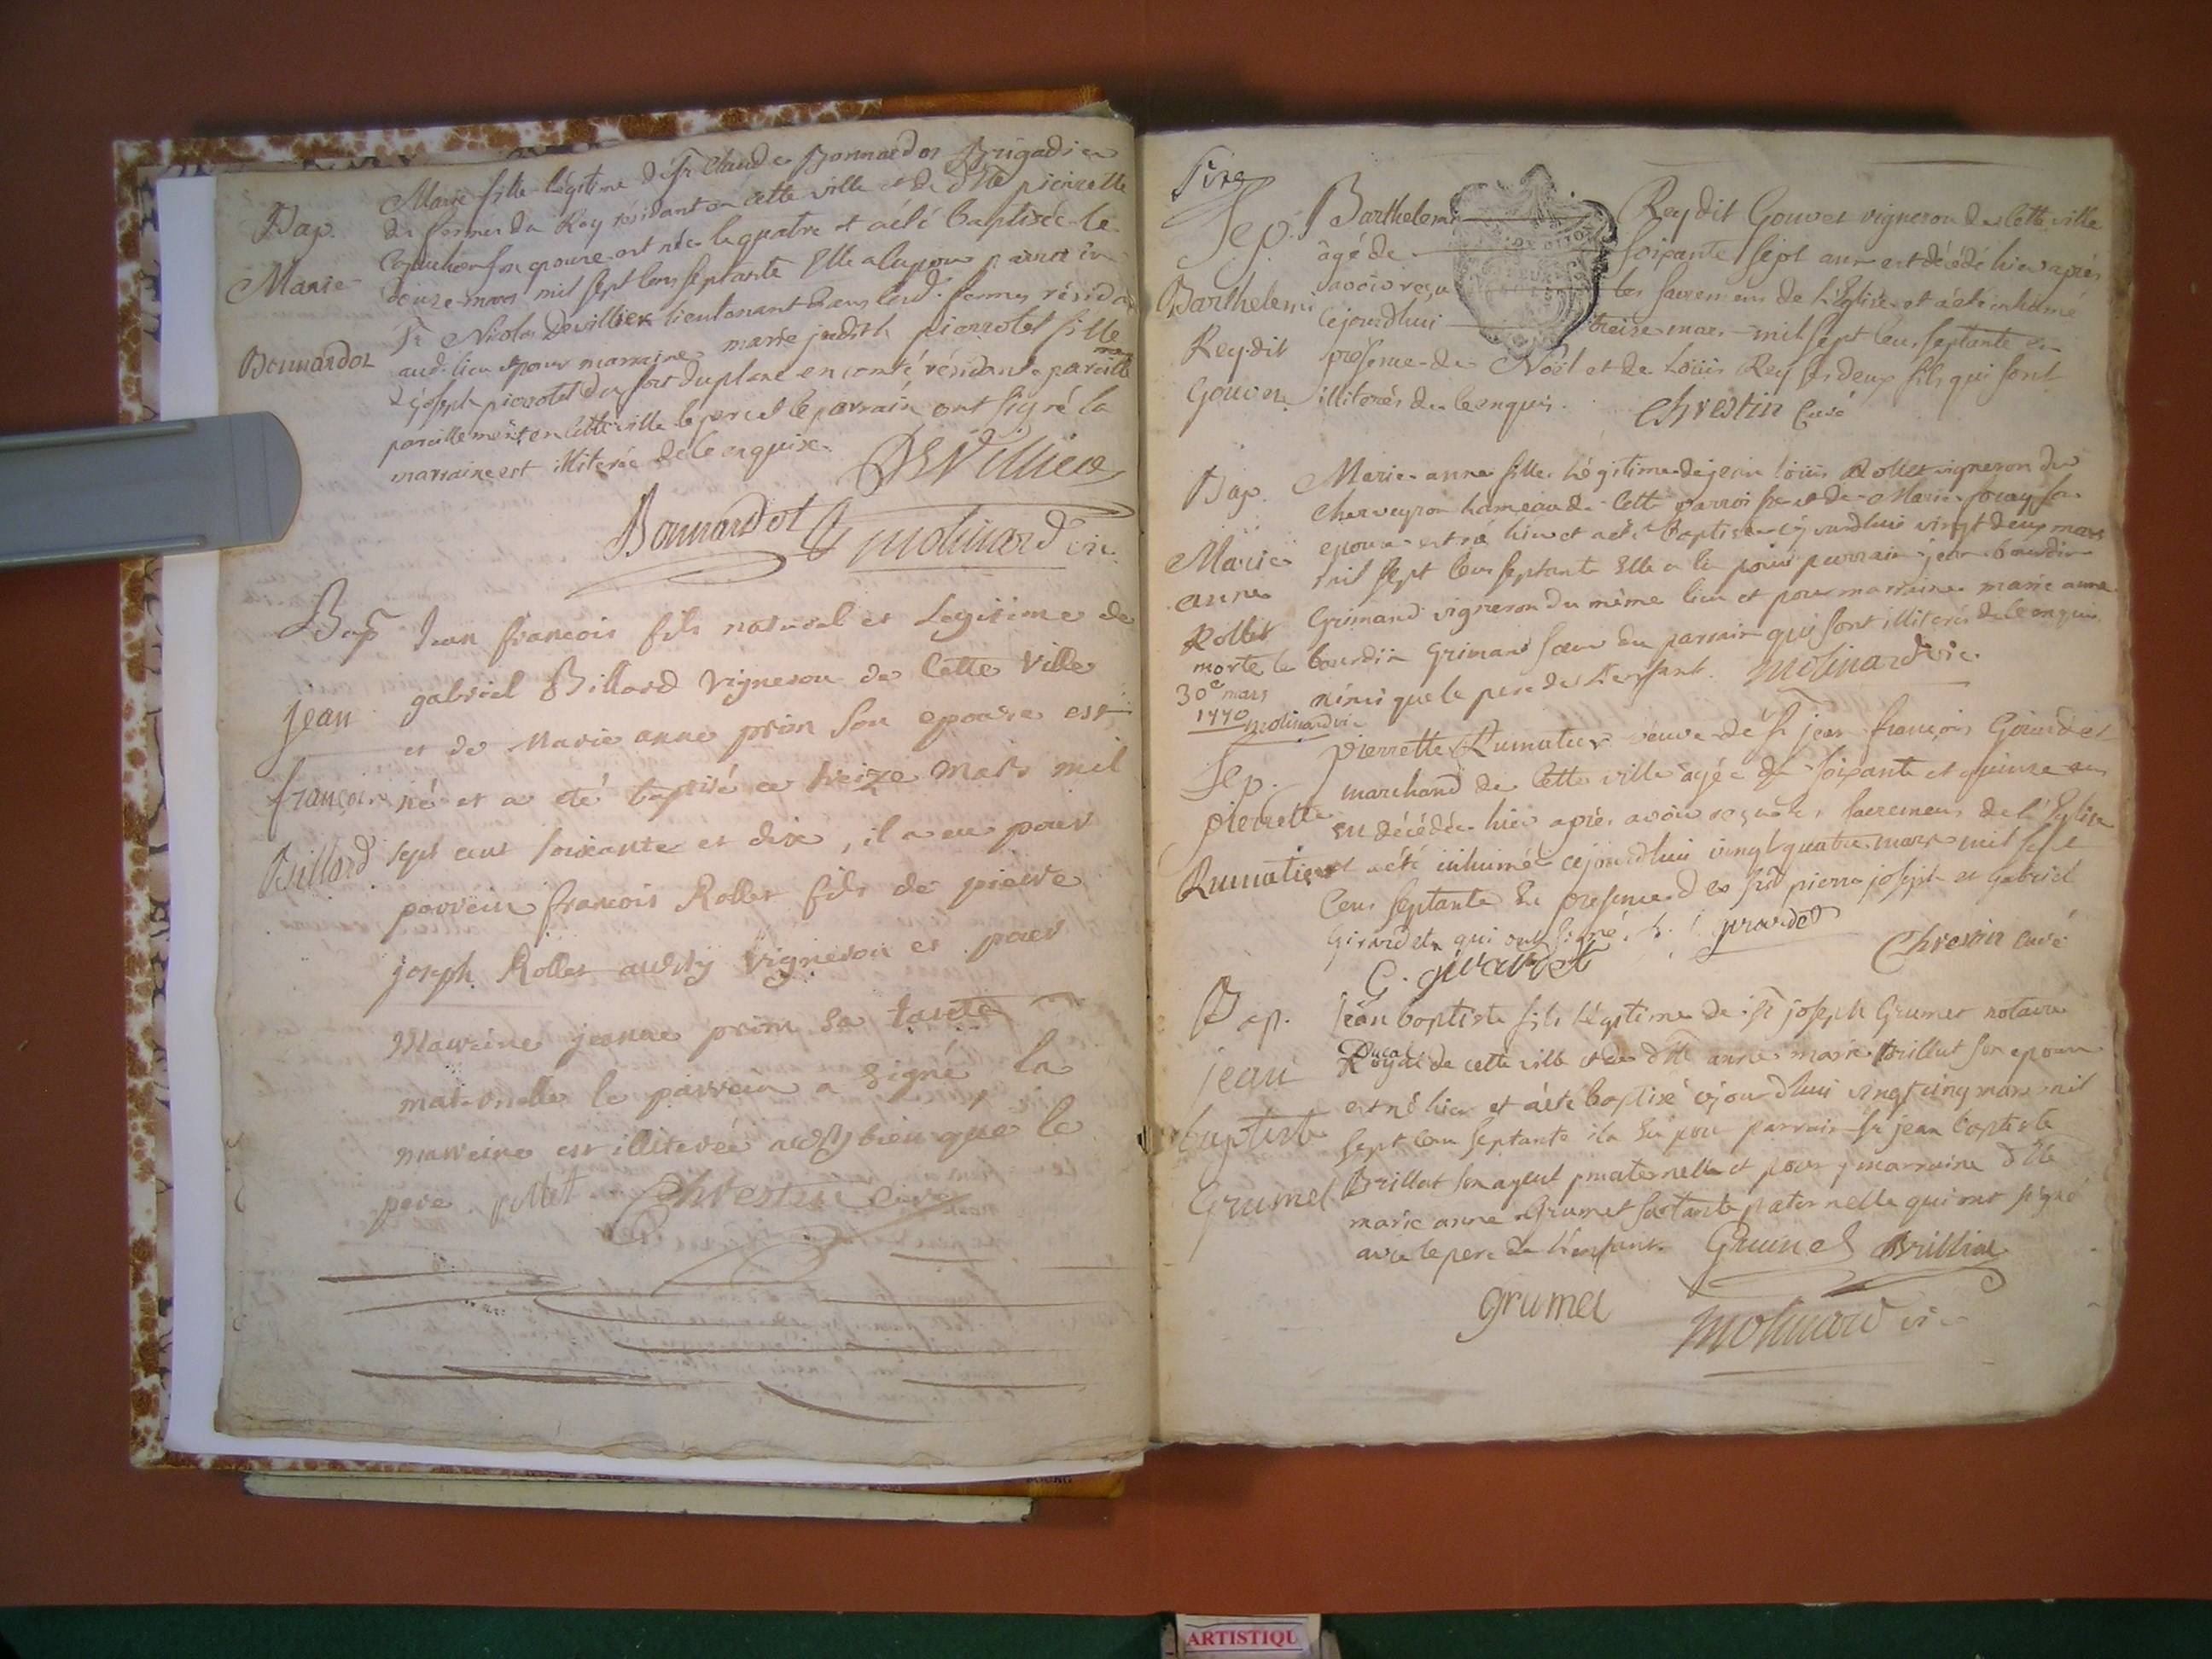 Bap.
Marie
Bonnardot
Marie fille légitime de Sr Claude Bonnardot Brigadier
des fermes du Roy résidant en cette ville et de dlle pierrette
son epouse est née le quatre et a été baptisée le
douze mars mil sept cens septante Elle a eu pour parrain
Sr Nicolas Devilliers lieutenant dans lesd. fermes résidant
aud. lieu et pour marraine marie judith pierrotet fille
de joseph pierrotet du fort du plane en comté, résidante pareille
pareillement en cette ville le pere et le parrain ont signé la
marraine est illiterée de ce enquise.
DEVillier
Bonnardot molinard vic.
Bap
jean
françois
Billard
Jean françois fils naturel et Legitime de
gabriel Billard Vigneron de Cette Ville
et de Marie anne prin son epouse est
né et a eté baptisé ce treize Mars mil
sept cent soixante et dix, il a eu pour
parrein françois Rollet fils de pierre
joseph Rollet audsy Vigneron et pour
Marreine jeanne prin sa tante
maternelle le parrein a Signé la
marreine est illiterée audsy bien que le
pere rollet Chrestin Curé
Sep.
Barthelemi
Rey dit
Gouvet
Barthelemi Rey dit Gouvet vigneron de cette ville
âgé de soixante sept ans est décédé hier après
avoir reçu les sacremens de l'Eglise et a été inhumé
cejourdhui treize mars mil sept cens septante en
présence de Noël et de Loüis Rey ses deux fils qui sont
illiterés de ce enquis. Chrestin Curé
Bap.
Marie
anne
Rollet
morte le
30e mars
1770
molinard vic
Marie anne fille légitime de jean loüis Rollet vigneron de
Cherveyron hameau de cette parroisse et de Marie sa
epouse est né hier et a été Baptisée cejourdhui vingt deux mars
mil sept cens septante Elle a eu pour parrain jean bourdin
Grimand vigneron du même lieu et pour marraine marie anne
bourdin Grimand soeur du parrain qui sont illiterés de ce enquis
ainsi que le pere de l'enfant. Molinard vic
Sep.
pierrette
Rumatier
pierrette Rumatier veuve de Sr jean françois Girardet
marchand de cette ville agée de soixante et quinze ans
est décédée hier après avoir reçu les sacremens de l'Eglise
et a été inhumée cejourdhui vingt quatre mars mil sept
cens septante En presence des Srs pierre joseph et Gabriel
Girardets qui ont signé. girardet
G. girardet Chrestin Curé
Bap.
jean
baptiste
Grumet
Jean baptiste fils légitime de Sr joseph Grumet notaire
Ducal
Royal de cette ville et de dlle anne marie brillat son epouse
est né hier et a été baptisé cejourdhui vingt cinq mars mil
sept cens septante il a eu pour parrain Sr jean baptiste
Brillat son ayeul maternelle et pour marraine dlle
marie anne Grumet sa tante paternelle qui ont signé
avec le pere de l'enfant. Grumet Brillat
grumet
molinard vic
ARTISTIQU